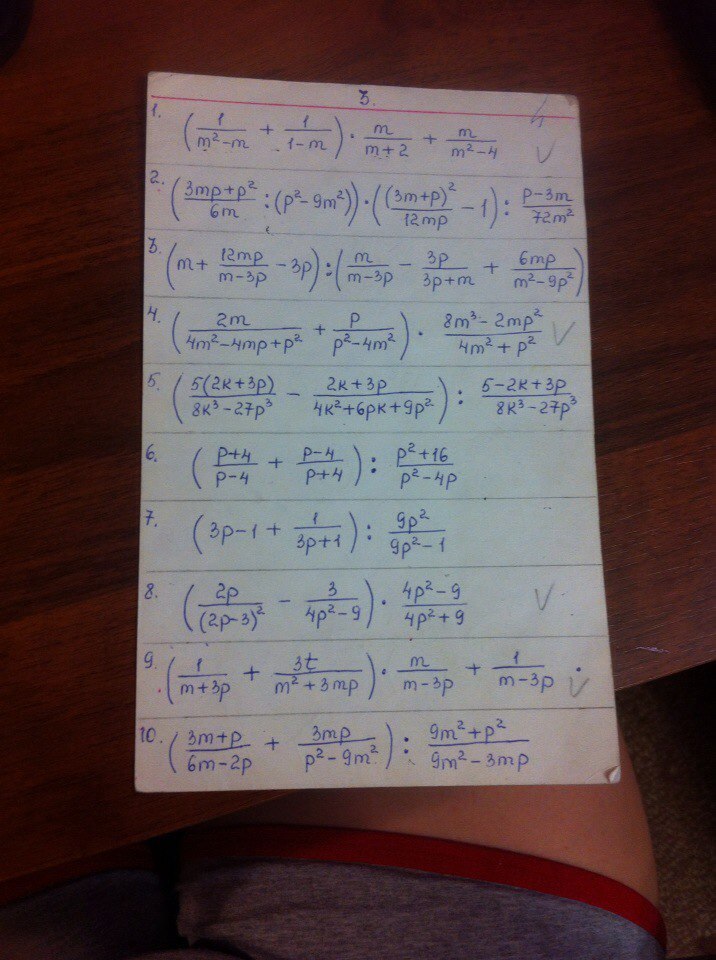 3.
1. (1/(m²-m) + 1/(1-m)) · m/(m+2) + m/(m²-4)
2. ((3mp+p²)/6m : (p²-9m²)) · ((3m+p)²/12mp - 1) : (p-3m)/72m²
3. (m + 12mp/(m-3p) - 3p) : (m/(m-3p) - 3p/(3p+m) + 6mp/(m²-9p²))
4. (2m/(4m²-4mp+p²) + p/(p²-4m²)) · (8m³-2mp²)/(4m²+p²)
5. (5(2k+3p)/(8k³-27p³) - (2k+3p)/(4k²+6pk+9p²)) : (5-2k+3p)/(8k³-27p³)
6. ((p+4)/(p-4) + (p-4)/(p+4)) : (p²+16)/(p²-4p)
7. (3p-1 + 1/(3p+1)) : 9p²/(9p²-1)
8. (2p/(2p-3)² - 3/(4p²-9)) · (4p²-9)/(4p²+9)
9. (1/(m+3p) + 3t/(m²+3mp)) · m/(m-3p) + 1/(m-3p) .
10. ((3m+p)/(6m-2p) + 3mp/(p²-9m²)) : (9m²+p²)/(9m²-3mp)